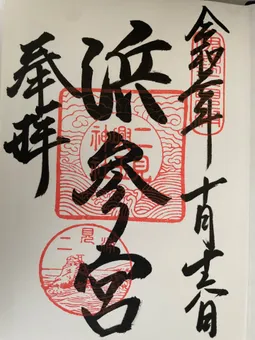 奉拝
浜參宮
令和年十月六日
二見興玉神社
二見浦